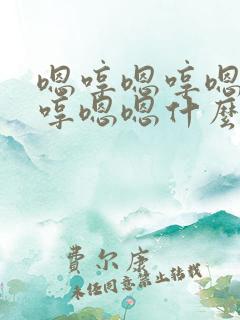 嗯哼嗯哼嗯
哼嗯嗯什麼
費尔康
未经同意禁止转载